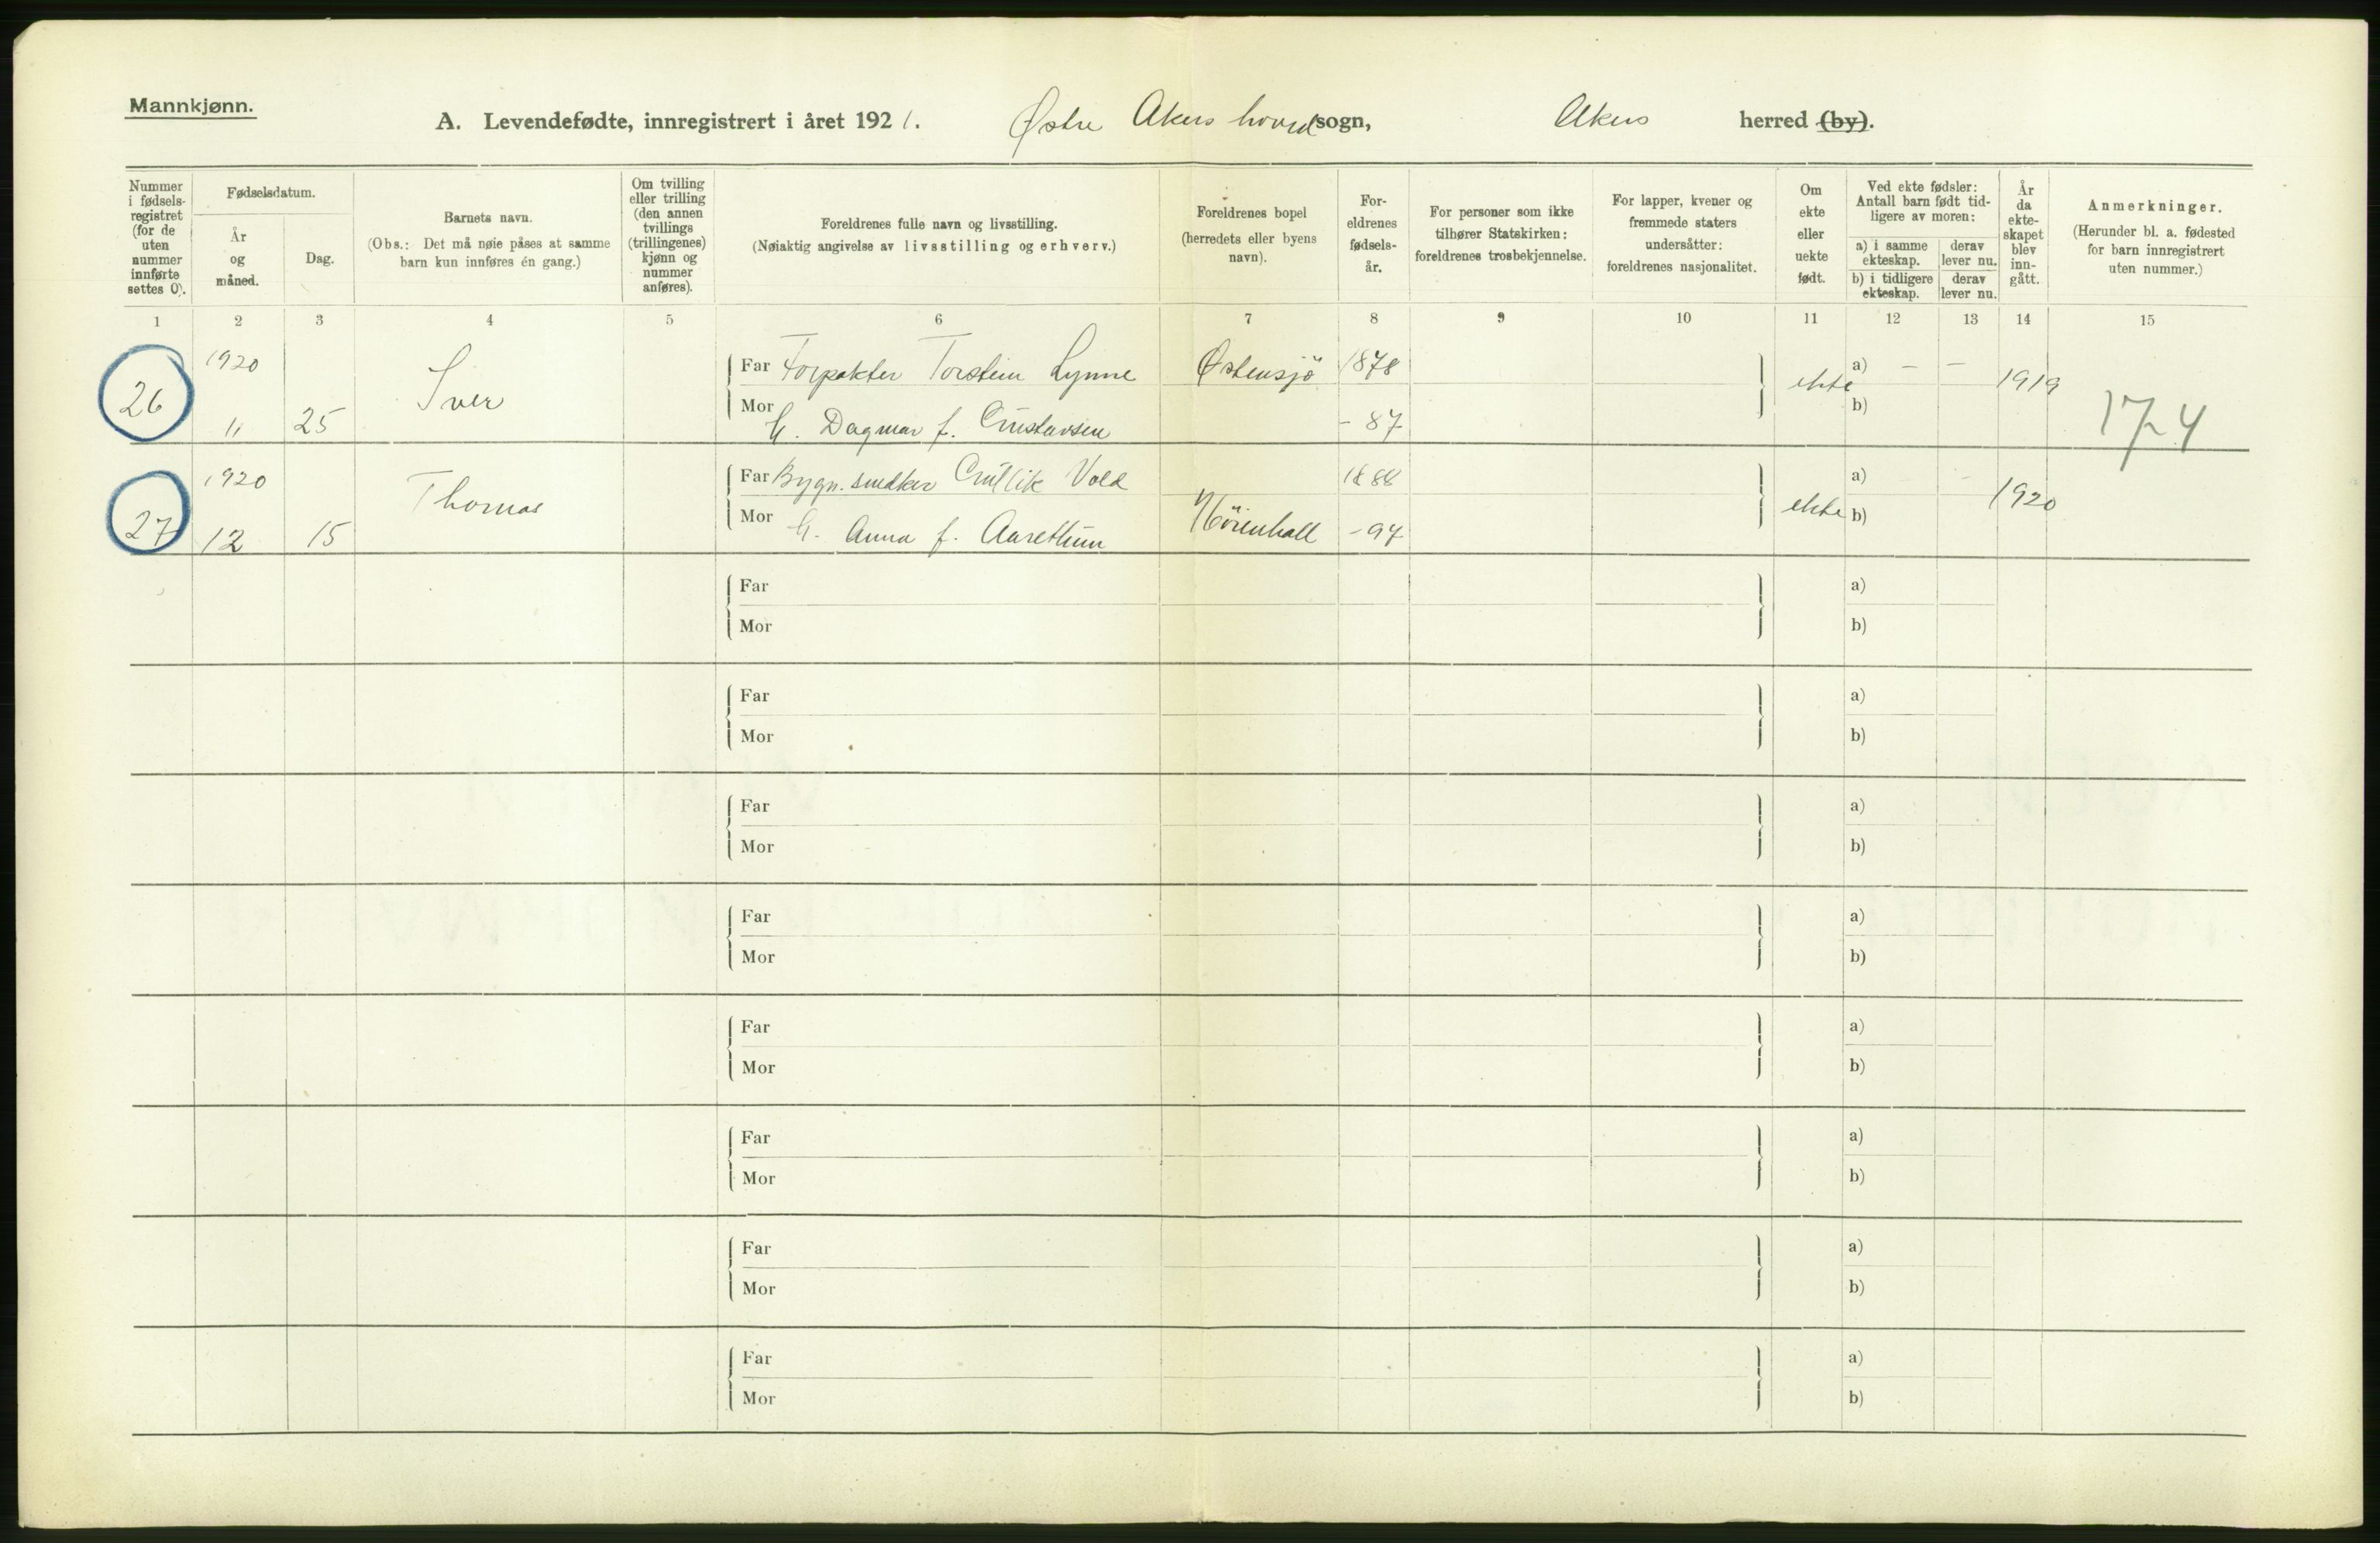 Mannkjønn.
A. Levendefødte, innregistrert i året 1921. Østre Akers hovedsogn, Akers herred (by).
Nummer i fødselsregistret (for de uten nummer innførte settes 0).
Fødselsdatum.
År og måned.
Dag.
Barnets navn.
(Obs.: Det må nøie påses at samme barn kun innføres én gang.)
Om tvilling eller trilling (den annen tvillings (trillingenes) kjønn og nummer anføres).
Foreldrenes fulle navn og livsstilling.
(Nøiaktig angivelse av livsstilling og erhverv.)
Foreldrenes bopel (herredets eller byens navn).
Foreldrenes fødselsår.
For personer som ikke tilhører Statskirken: foreldrenes trosbekjennelse.
For lapper, kvener og fremmede staters undersåtter: foreldrenes nasjonalitet.
Om ekte eller uekte født.
Ved ekte fødsler: Antall barn født tidligere av moren:
a) i samme ekteskap.
derav lever nu.
b) i tidligere ekteskap.
derav lever nu.
År da ekteskapet blev inngått.
Anmerkninger.
(Herunder bl. a. fødested for barn innregistrert uten nummer.)
1 2 3 4 5 6 7 8 9 10 11 12 13 14 15
26 1920 11 25 Iver
Far Forpakter Torstein Lynne Østensjö 1878 ekte a) — — 1919
Mor h. Dagmar f. Gustavsen - 87 b)
174
27 1920 12 15 Thomas
Far Bygn. snedker Gullik Vold 1888 ekte a) - 1920
Mor h. Anna f. - 94 b)
Far a)
Mor b)
Far a)
Mor b)
Far a)
Mor b)
Far a)
Mor b)
Far a)
Mor b)
Far a)
Mor b)
Far a)
Mor b)
Far a)
Mor b)